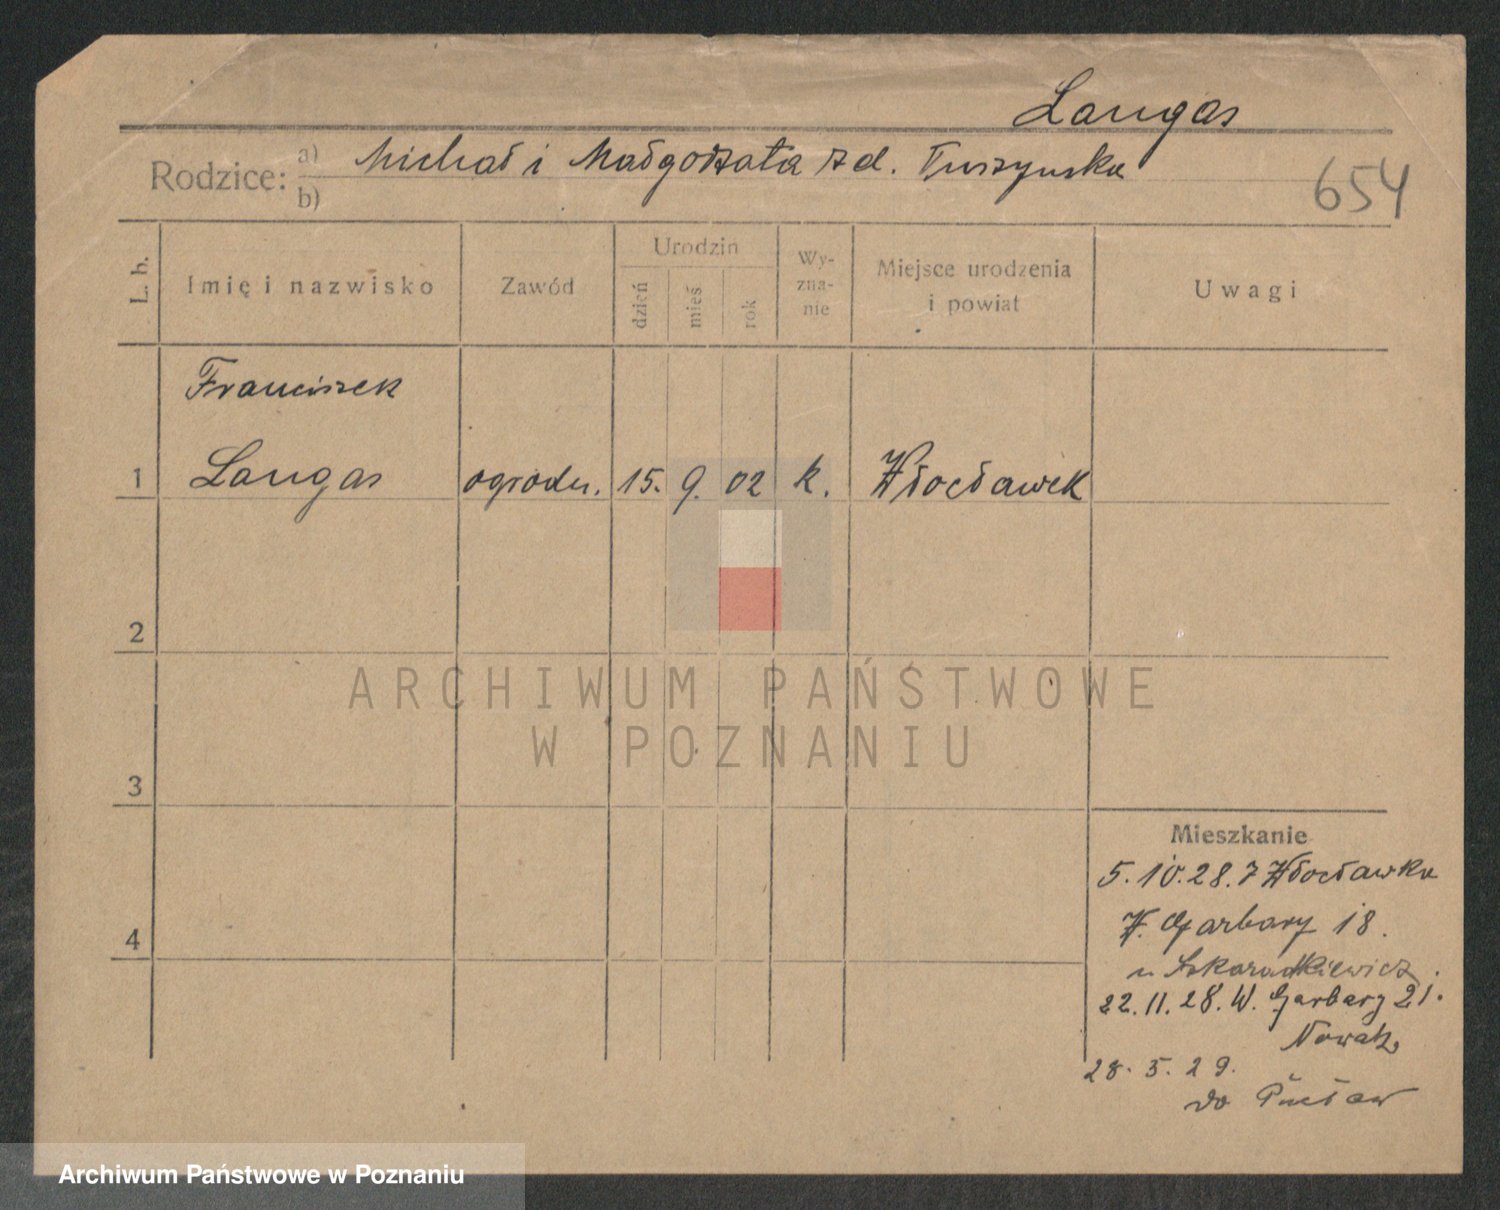 Langas
Rodzice: a) Michał i Małgorzata z d. Turzyńska
b)
654
L. b.
Imię i nazwisko
Zawód
Urodzin
dzień
mieś
rok
Wy-
zna-
nie
Miejsce urodzenia
i powiat
Uwagi
Franciszek
1 Langas ogrodn. 15. 9. 02 k. Włocławek
2
ARCHIWUM PAŃSTWOWE
W POZNANIU
3
4
Mieszkanie
5.10.28. z Włocławka
W. Garbary 18.
u
22.11.28. W. Garbary 21.
Nowak
28.5.29.
do
Archiwum Państwowe w Poznaniu